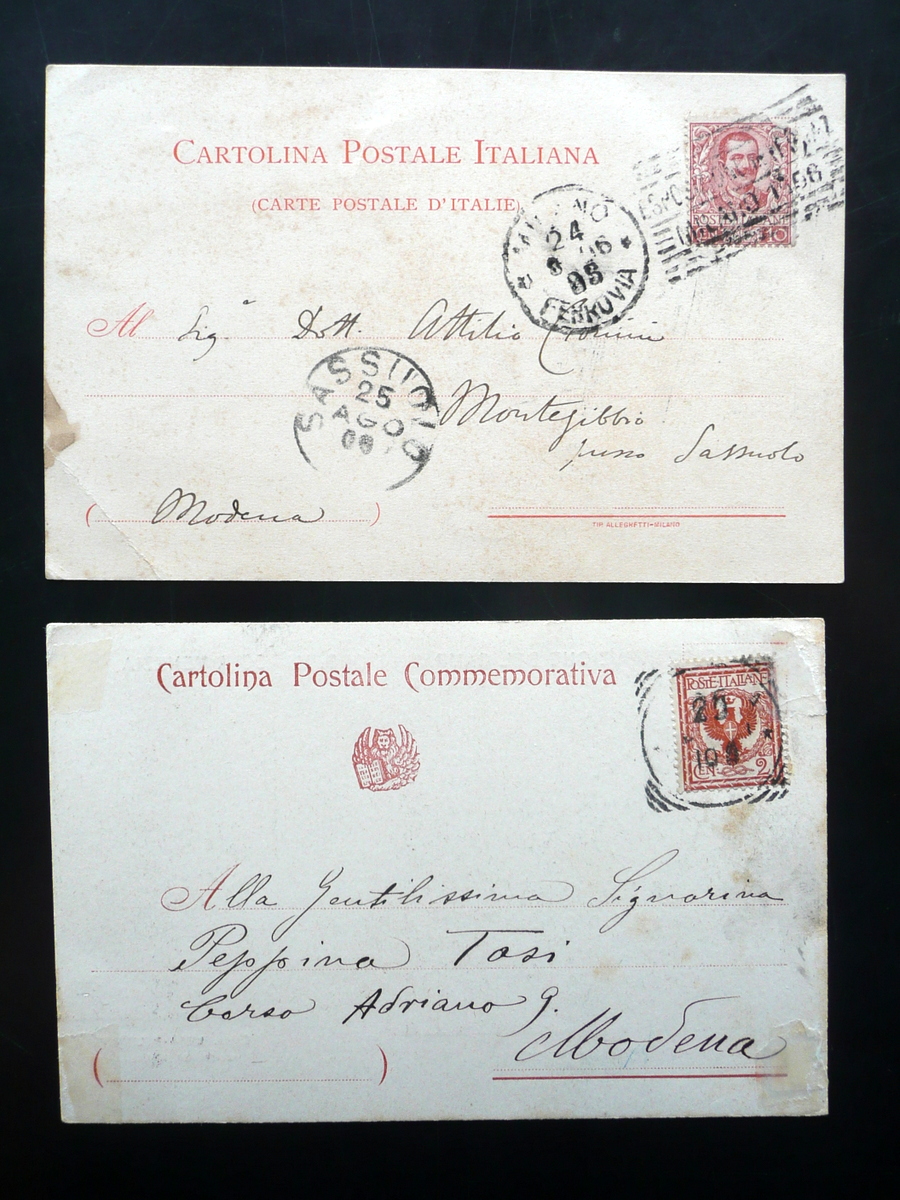 CARTOLINA POSTALE ITALIANA
(CARTE POSTALE D'ITALIE)
POSTE ITALIANE
10
MILANO
24
8 06
FERROVIA
Al Sig.r Dott. Attilio
SASSUOLO
25
AGO
06
Montegibbio
presso Sassuolo
( Modena )
TIP. ALLEGRETTI-MILANO
Cartolina Postale Commemorativa
POSTE·ITALIANE
20
CEN 2
Alla Gentilissima Signorina
Peppina Tosi
Corso Adriano 9.
Modena
( )